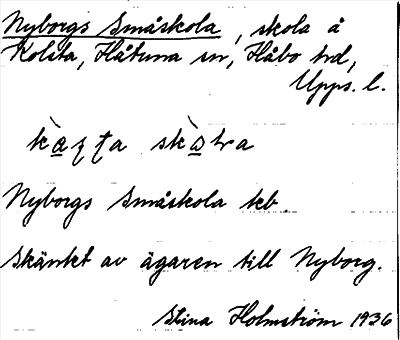 Nyborgs Småskola, skola å
Kolsta, Håtuna sn, Håbo hd,
Upps. l.
Nyborgs Småskola tcb.
Skänkt av ägaren till Nyborg.
Stina Holmström 1936